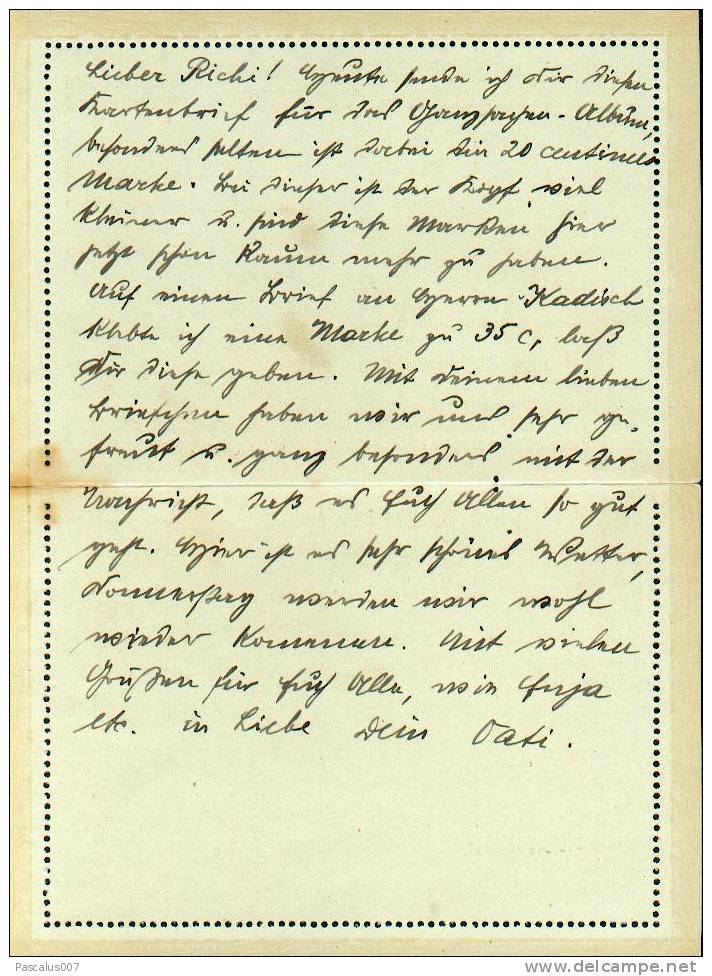 Lieber Richi! Heute sende ich Dir diesen
Kartenbrief für das Ganzsachen-Album,
besonders selten ist dabei die 20 centimes
Marke. Bei dieser ist der Kopf viel
kleiner u. sind diese Marken hier
jetzt schon kaum mehr zu haben.
Auf einen Brief an Herrn Kadisch
klebte ich eine Marke zu 35 c, laß
Dir diese geben. Mit Deinem lieben
Brieferl haben wir uns sehr ge-
freut u. ganz besonders mit der
Nachricht, daß es Euch Allen so gut
geht. Hier ist es sehr schönes Wetter,
Donnerstag werden wir wohl
wieder kommen. Mit vielen
Grüßen für Euch Alle, wie
etc. in Liebe Dein Vati.
Pascalus007
www.delcampe.net